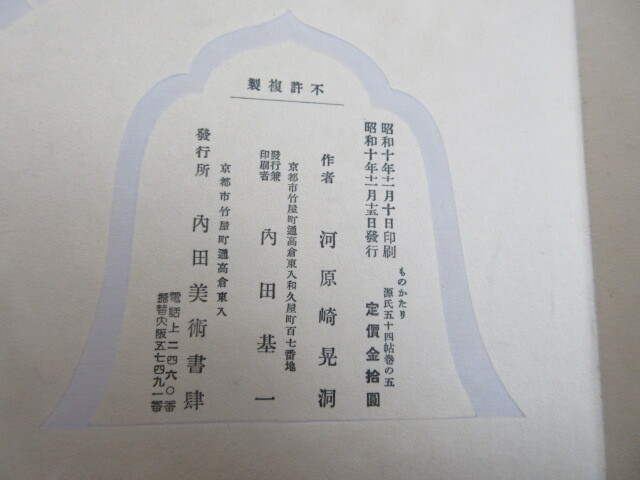 不許複製
昭和十年十二月十日印刷
昭和十年十二月十五日發行
ものかたり
源氏五十四帖巻の五
定價金拾圓
作者 河原崎晃洞
京都市竹屋町通高倉東入和久屋町百七番地
發行兼
印刷者
內田基一
京都市竹屋町通高倉東入
發行所 內田美術書肆
電話上二四六〇番
振替大阪五七四九一番